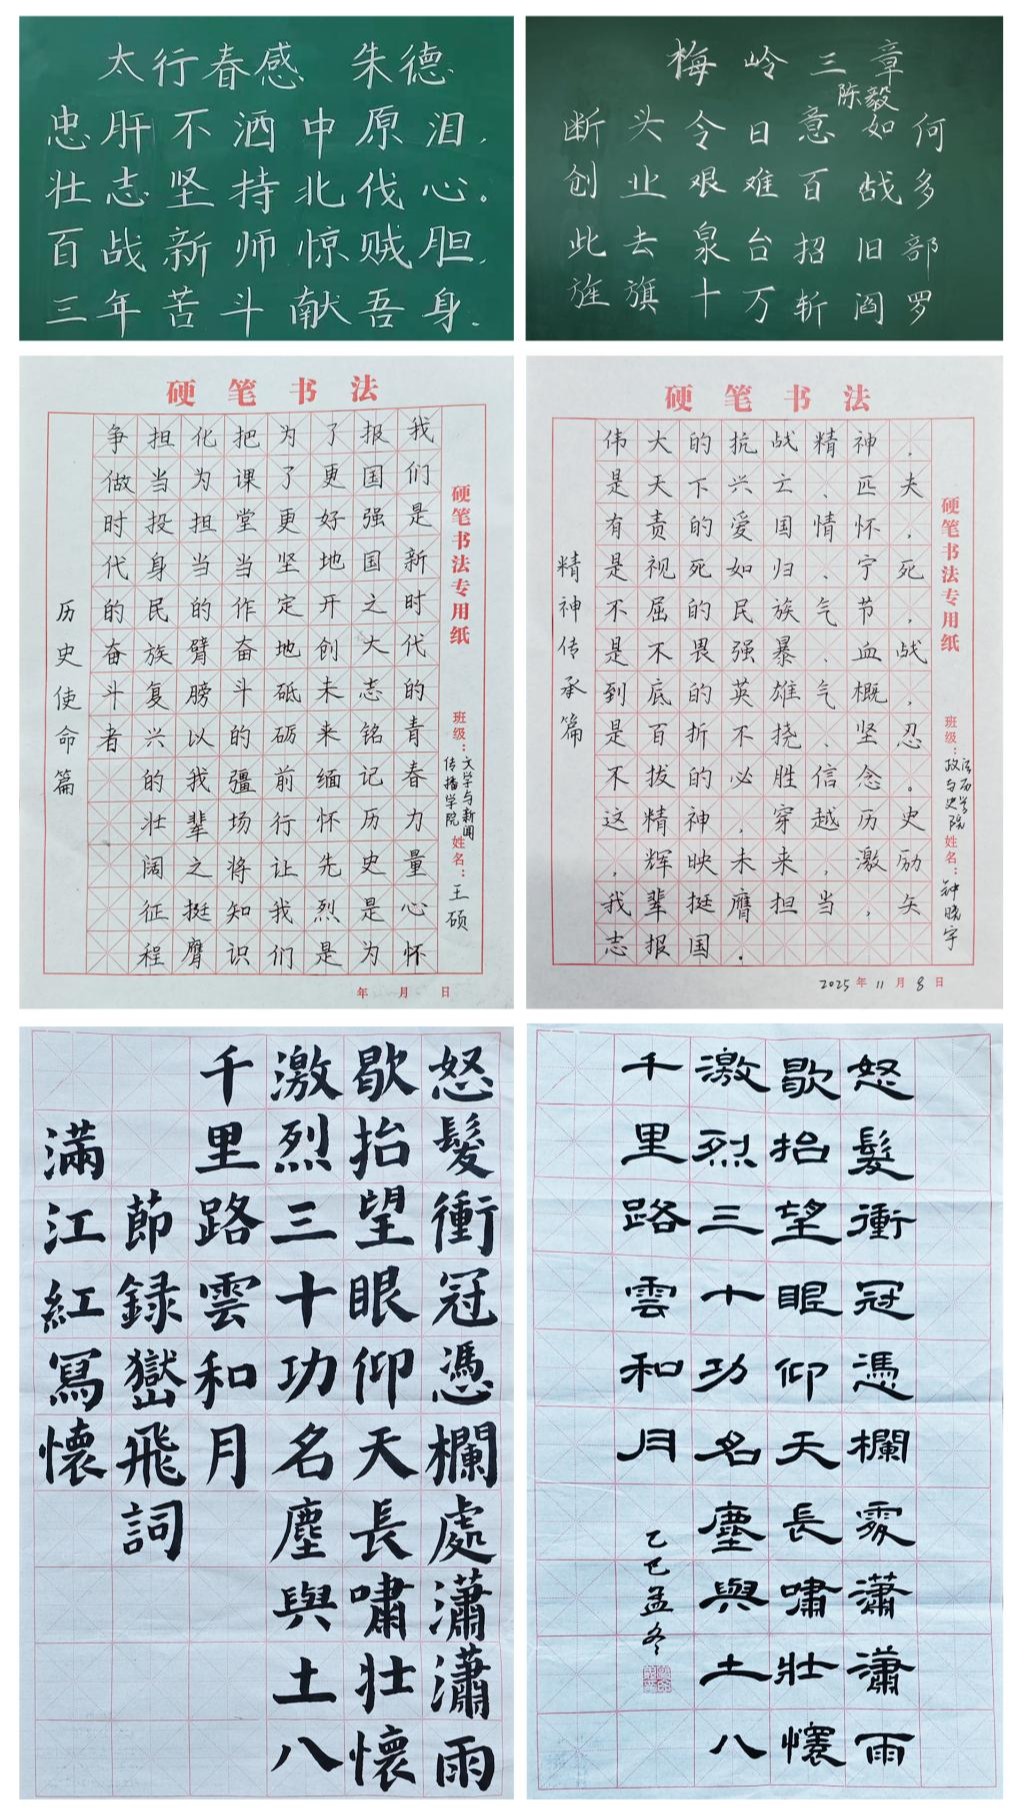 太行春感 朱德
忠肝不洒中原泪，
壮志坚持北伐心。
百战新师惊贼胆，
三年苦斗献吾身。
梅岭三章
陈毅
断头今日意如何
创业艰难百战多
此去泉台招旧部
旌旗十万斩阎罗
硬笔书法
硬笔书法专用纸
班级：文学与新闻传播学院 姓名：王硕
我们是新时代的青春力量心怀
报国强国之大志铭记历史是为
了更好地开创未来缅怀先烈是
为了更坚定地砥砺前行让我们
把课堂当作奋斗的疆场将知识
化为担当的臂膀以我辈之挺膺
担当投身民族复兴的壮阔征程
争做时代的奋斗者
历史使命篇
年 月 日
硬笔书法
硬笔书法专用纸
班级：政法与历史学院 姓名：钟晓宇
伟大的抗战精神，
是天下兴亡、匹夫
有责的爱国情怀，
是视死如归、宁死
不屈的民族气节，
是不畏强暴、血战
到底的英雄气概，
是百折不挠、坚忍
不拔的必胜信念。
这精神，穿越历史
，辉映未来，激励
我辈挺膺担当，矢
志报国。
精神传承篇
2025年11月8日
怒髮衝冠憑欄處瀟瀟雨
歇抬望眼仰天長嘯壯懷
激烈三十功名塵與土八
千里路雲和月
節録嶽飛詞
滿江紅寫懷
怒髮衝冠憑欄處瀟瀟雨
歇抬望眼仰天長嘯壯懷
激烈三十功名塵與土八
千里路雲和月
乙巳孟冬